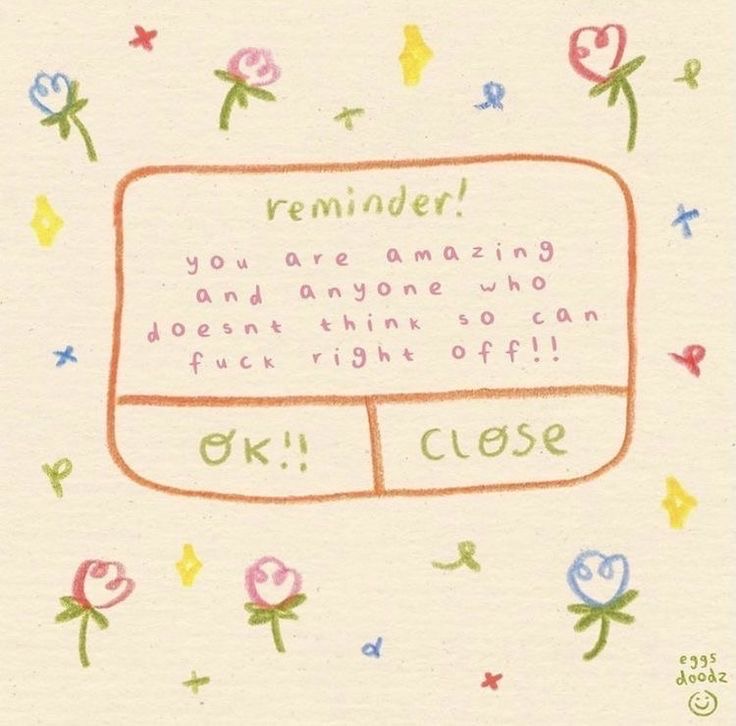 reminder!
you are amazing
and anyone who
doesnt think so can
fuck right off!!
OK!!
CLOSE
eggs
doodz